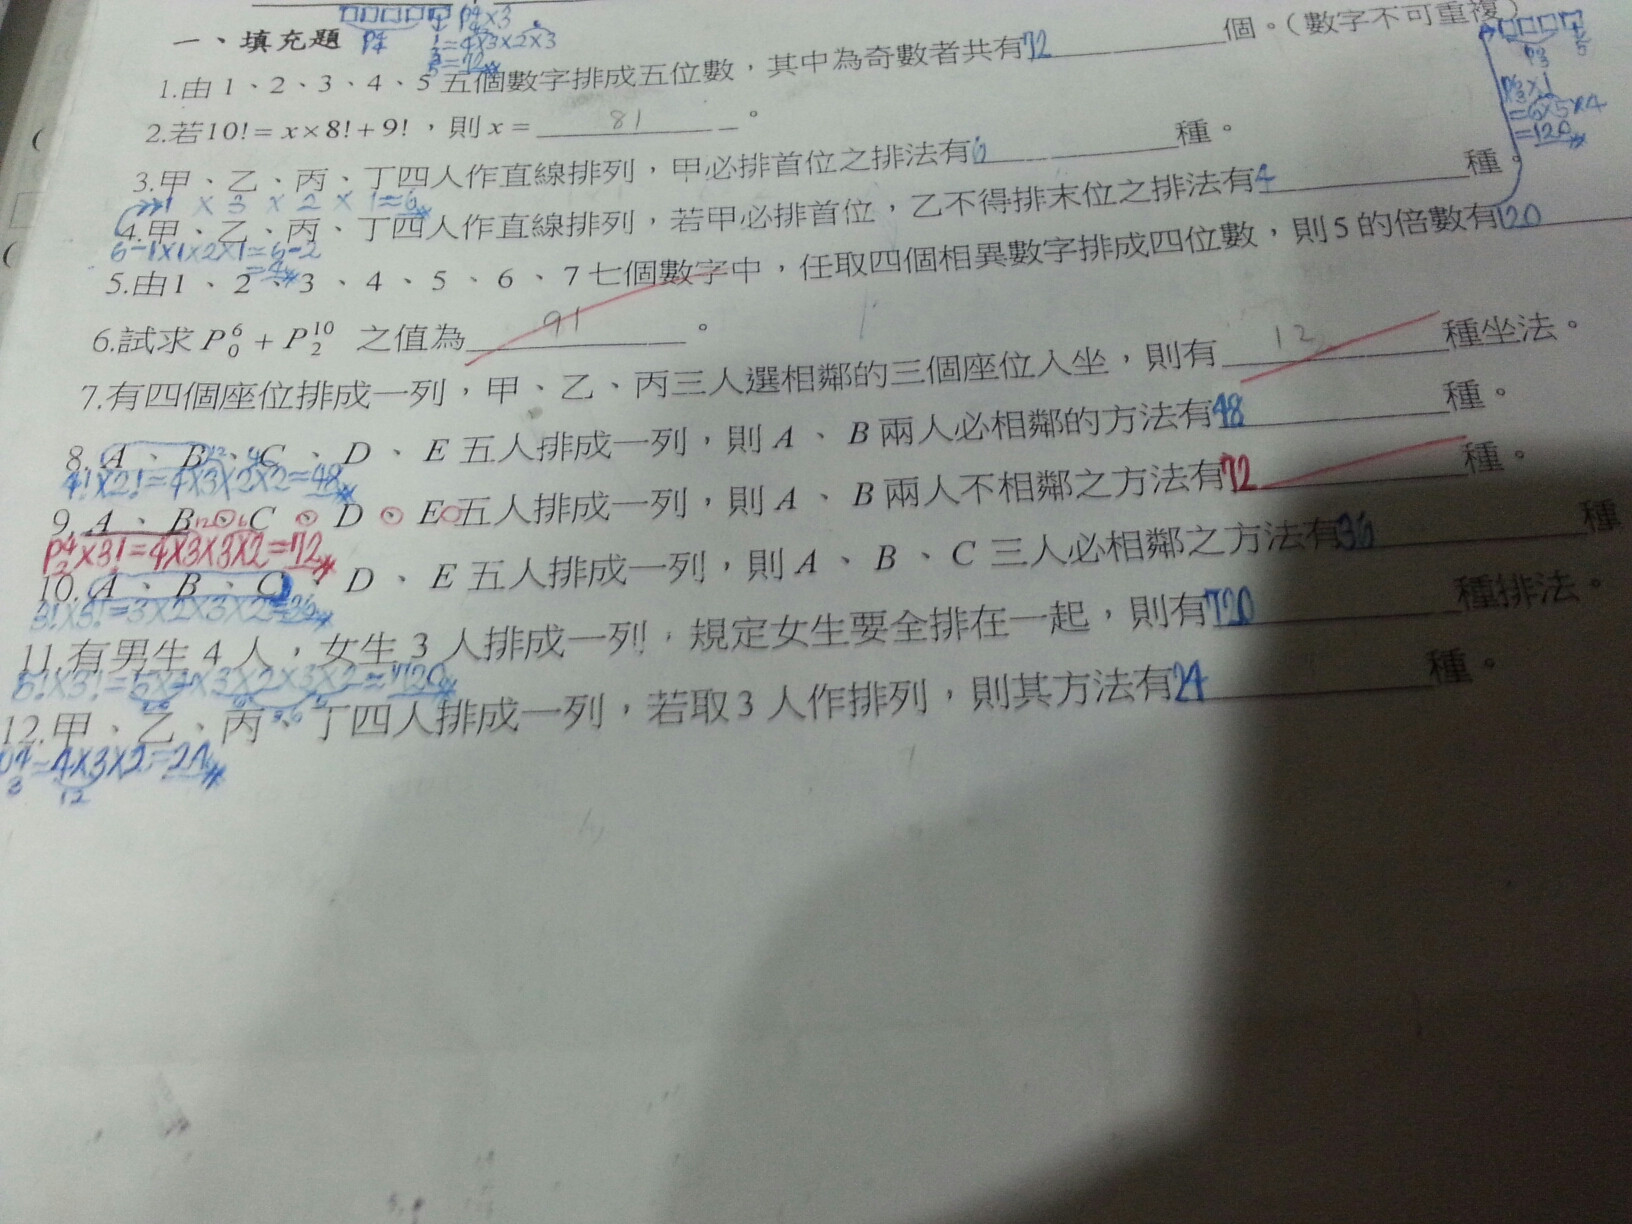 P⁴₄×3
一、填充題 P⁴₄ =4×3×2×3
=72
1.由1、2、3、4、5五個數字排成五位數,其中為奇數者共有72個。(數字不可重複)
2.若10!=x×8!+9!,則x=81。
3.甲、乙、丙、丁四人作直線排列,甲必排首位之排法有6種。
1×3×2×1=6
4.甲、乙、丙、丁四人作直線排列,若甲必排首位,乙不得排末位之排法有4種。
6-1×1×2×1=6-2
=4
5.由1、2、3、4、5、6、7七個數字中,任取四個相異數字排成四位數,則5的倍數有120
P⁶₃×1
=6×5×4
=120
6.試求P⁶₀+P¹⁰₂之值為91。
7.有四個座位排成一列,甲、乙、丙三人選相鄰的三個座位入坐,則有12種坐法。
8.A、B、C、D、E五人排成一列,則A、B兩人必相鄰的方法有48種。
4!×2!=4×3×2×2=48
9.A、B、C、D、E五人排成一列,則A、B兩人不相鄰之方法有72種。
P⁴₂×3!=4×3×3×2=72
10.A、B、C、D、E五人排成一列,則A、B、C三人必相鄰之方法有36種
3!×3!=3×2×3×2=36
11.有男生4人,女生3人排成一列,規定女生要全排在一起,則有720種排法。
5!×3!=5×4×3×2×3×2=720
12.甲、乙、丙、丁四人排成一列,若取3人作排列,則其方法有24種。
P⁴₃=4×3×2=24
12